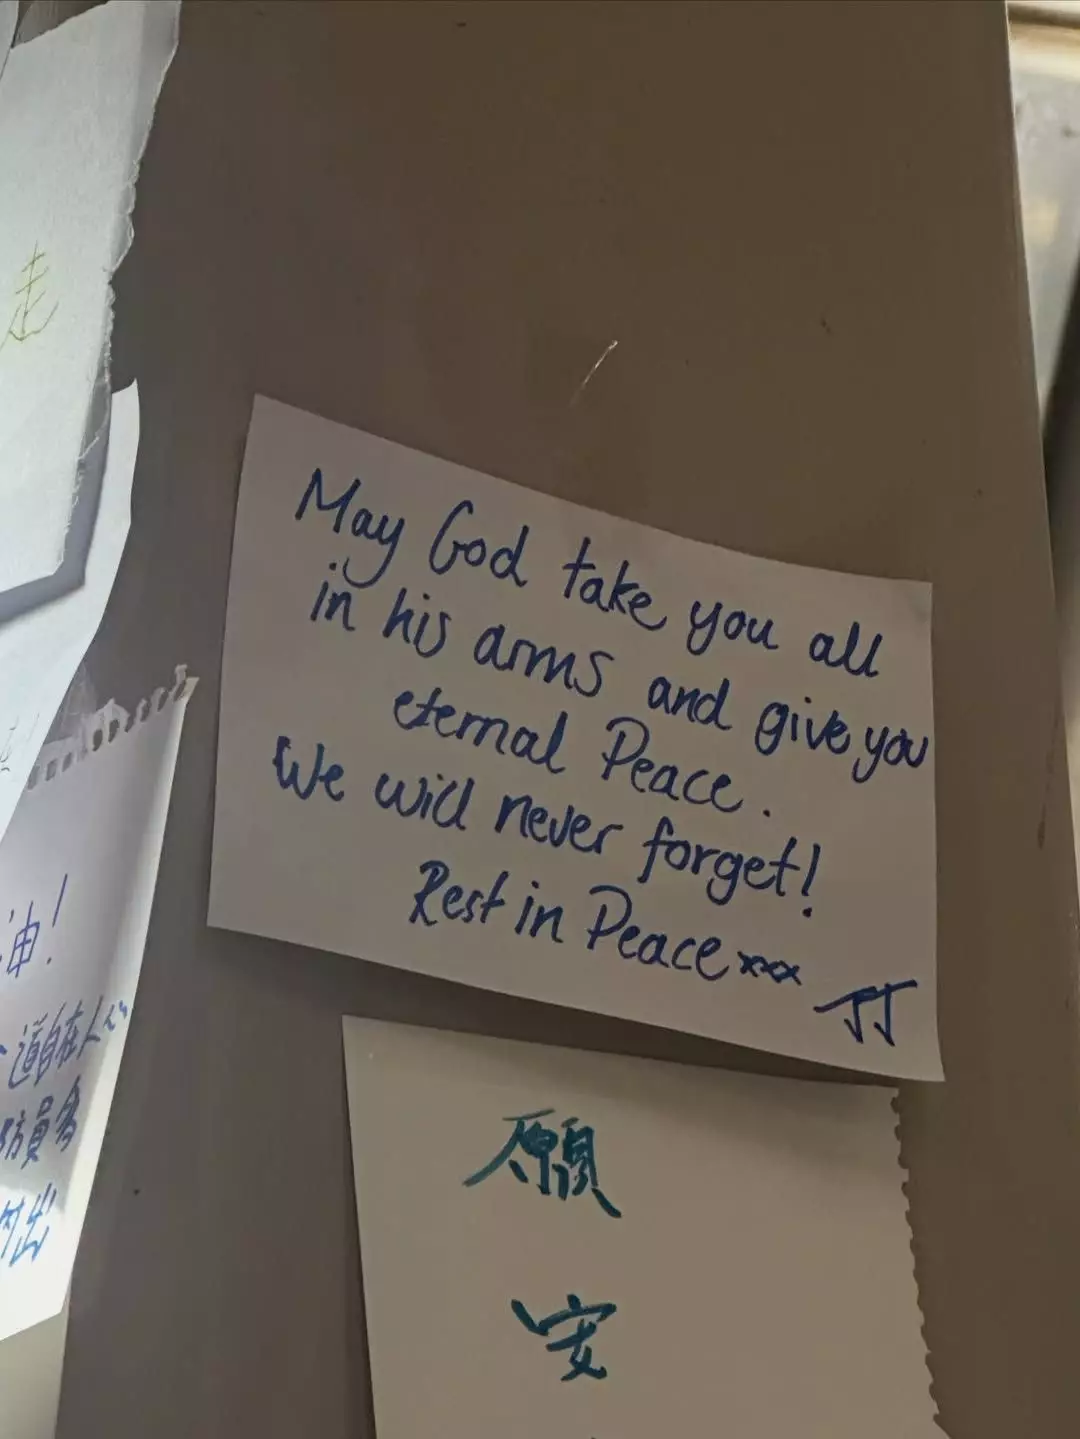 走
May God take you all
in his arms and give you
eternal Peace.
We will never forget!
Rest in Peace xxx
JJ
願
安
神!
道自在人心
防員多
付出